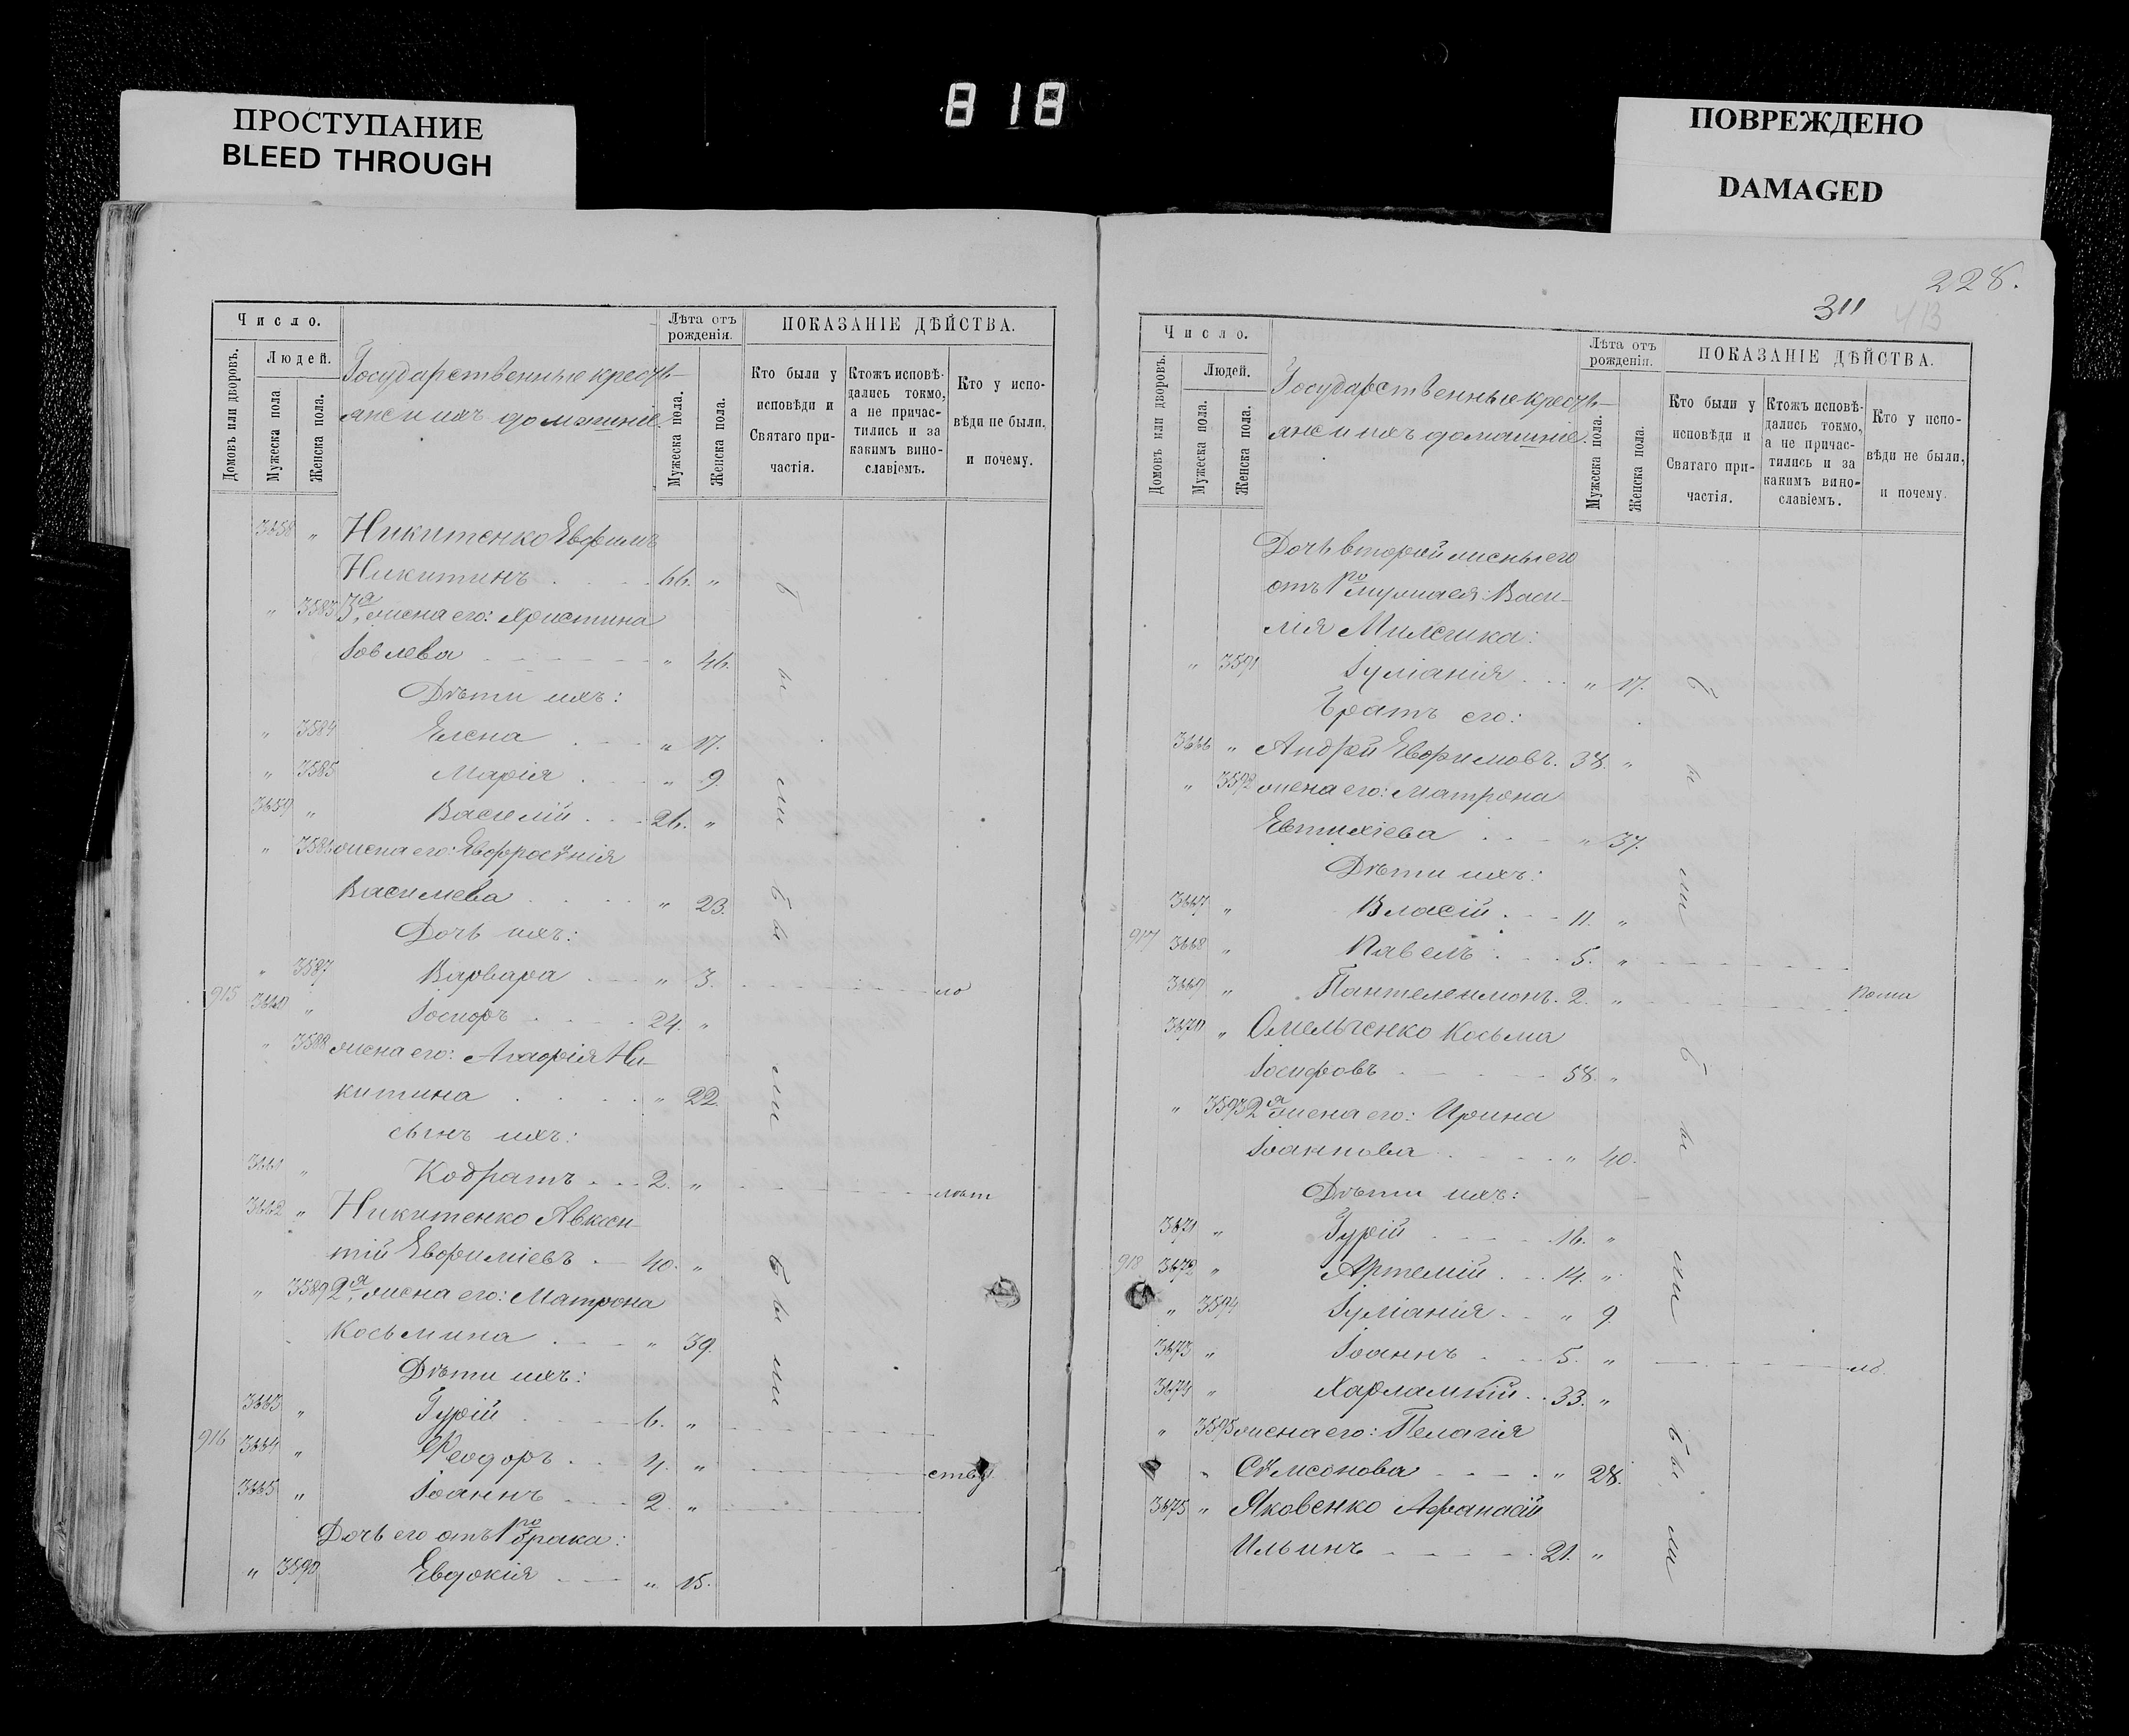 818
ПРОСТУПАНИЕ
BLEED THROUGH
ПОВРЕЖДЕНО
DAMAGED
Число.
Людей.
Домовъ или дворовъ.
Мужеска пола
Женска пола.
Государственные кресть-
яне и ихъ домашніе.
Лѣта отъ
рожденія.
Мужеска пола.
Женска пола.
ПОКАЗАНІЕ ДѢЙСТВА.
Кто были у
исповѣди и
Святаго при-
частія.
Ктожъ исповѣ-
дались токмо,
а не причас-
тились и за
какимъ вино-
славіемъ.
Кто у испо-
вѣди не были,
и почему.
3658 " Никитенко Евфимъ
Никитинъ 66. "
" 3583 3я жена его: Христина
Іовлева " 46.
Дѣти ихъ:
" 3584 Елена " 17.
" 3585 Марія " 9.
3659 " Василій 26. "
" 3586 жена его: Евфросѵнія
Василиева " 23.
Дочь ихъ:
" 3587 Варвара " 3. ло
915 3660 " Іосифъ 24. "
" 3588 жена его: Агафія Ни-
китина " 22.
сынъ ихъ:
3661 " Кодратъ 2. " лѣт
3662 " Никитенко Авксен-
тій Евфиміевъ 40. "
" 3589 2я жена его: Матрона
Косьмина " 39.
Дѣти ихъ:
3663 " Гурій 6. "
916 3664 " Ѳеодоръ 4. " ству
3665 " Іоаннъ 2. "
Дочь его отъ 1го брака:
" 3590 Евдокія " 15.
бы
ли
бы
ли
бы
ли
228.
311
413
Число.
Людей.
Домовъ или дворовъ.
Мужеска пола.
Женска пола.
Государственные кресть-
яне и ихъ домашніе.
Лѣта отъ
рожденія.
Мужеска пола.
Женска пола.
ПОКАЗАНІЕ ДѢЙСТВА.
Кто были у
исповѣди и
Святаго при-
частія.
Ктожъ исповѣ-
дались токмо,
а не причас-
тились и за
какимъ вино-
славіемъ.
Кто у испо-
вѣди не были,
и почему.
Дочь второй жены его
отъ 1го мужа ея: Васи-
лія
" 3591 Іуліанія " 17.
Братъ его:
3666 " Андрей Евфимовъ. 38. "
" 3592 жена его: Матрона
Евтихіева " 37.
Дѣти ихъ:
3667 " Власій 11. "
917 3668 " Павелъ 5. "
3669 " Пантелеимонъ. 2. "
3670 " Омельченко Косьма
Іосифовъ 58. "
" 3593 2я жена его: Ирина
Іоаннова " 40.
Дѣти ихъ:
3671 " Гурій 16. "
918 3672 " Артемій 14. "
" 3594 Іуліанія " 9.
3673 " Іоаннъ 5. " ло
3674 " Харлампій 33. "
" 3595 жена его: Пелагія
Сѵмсонова " 28.
3675 " Яковенко Афанасій
Ильинъ 21. "
бы
ли
бы
ли
бы
ли